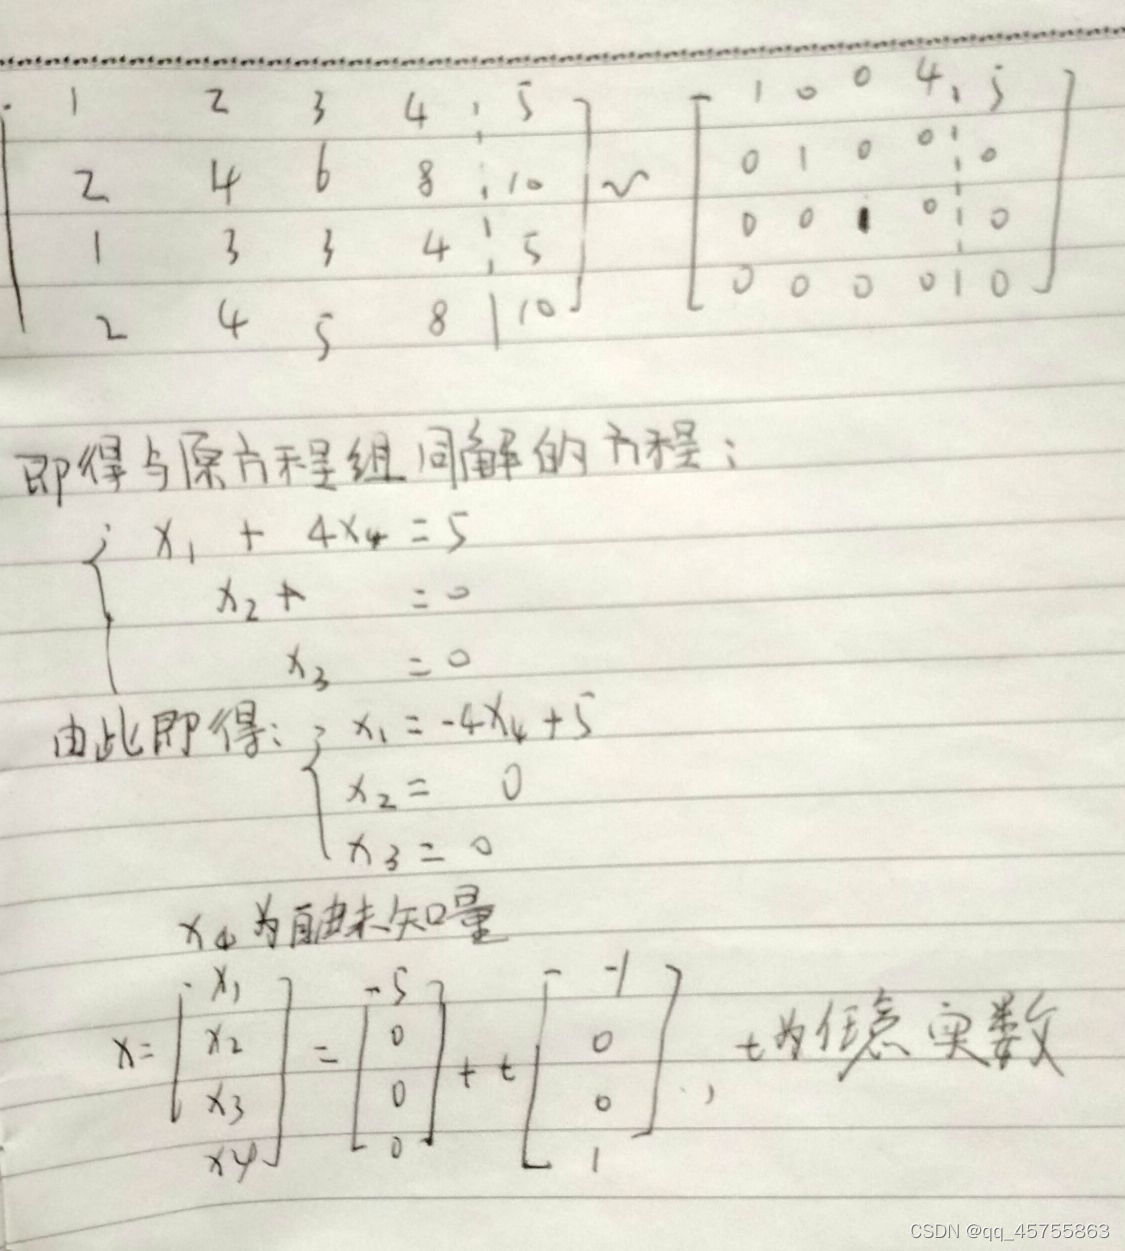 1 2 3 4 5 ~ 1 0 0 4 5
2 4 6 8 10 0 1 0 0 0
1 3 3 4 5 0 0 1 0 0
2 4 5 8 10 0 0 0 0 0
即得与原方程组同解的方程:
x₁ + 4x₄ = 5
x₂ + = 0
x₃ = 0
由此即得: x₁ = -4x₄ + 5
x₂ = 0
x₃ = 0
x₄为自由未知量
x = [x₁ x₂ x₃ x4] = [5 0 0 0] + t [-1 0 0 1], t为任意实数
CSDN @qq_45755863